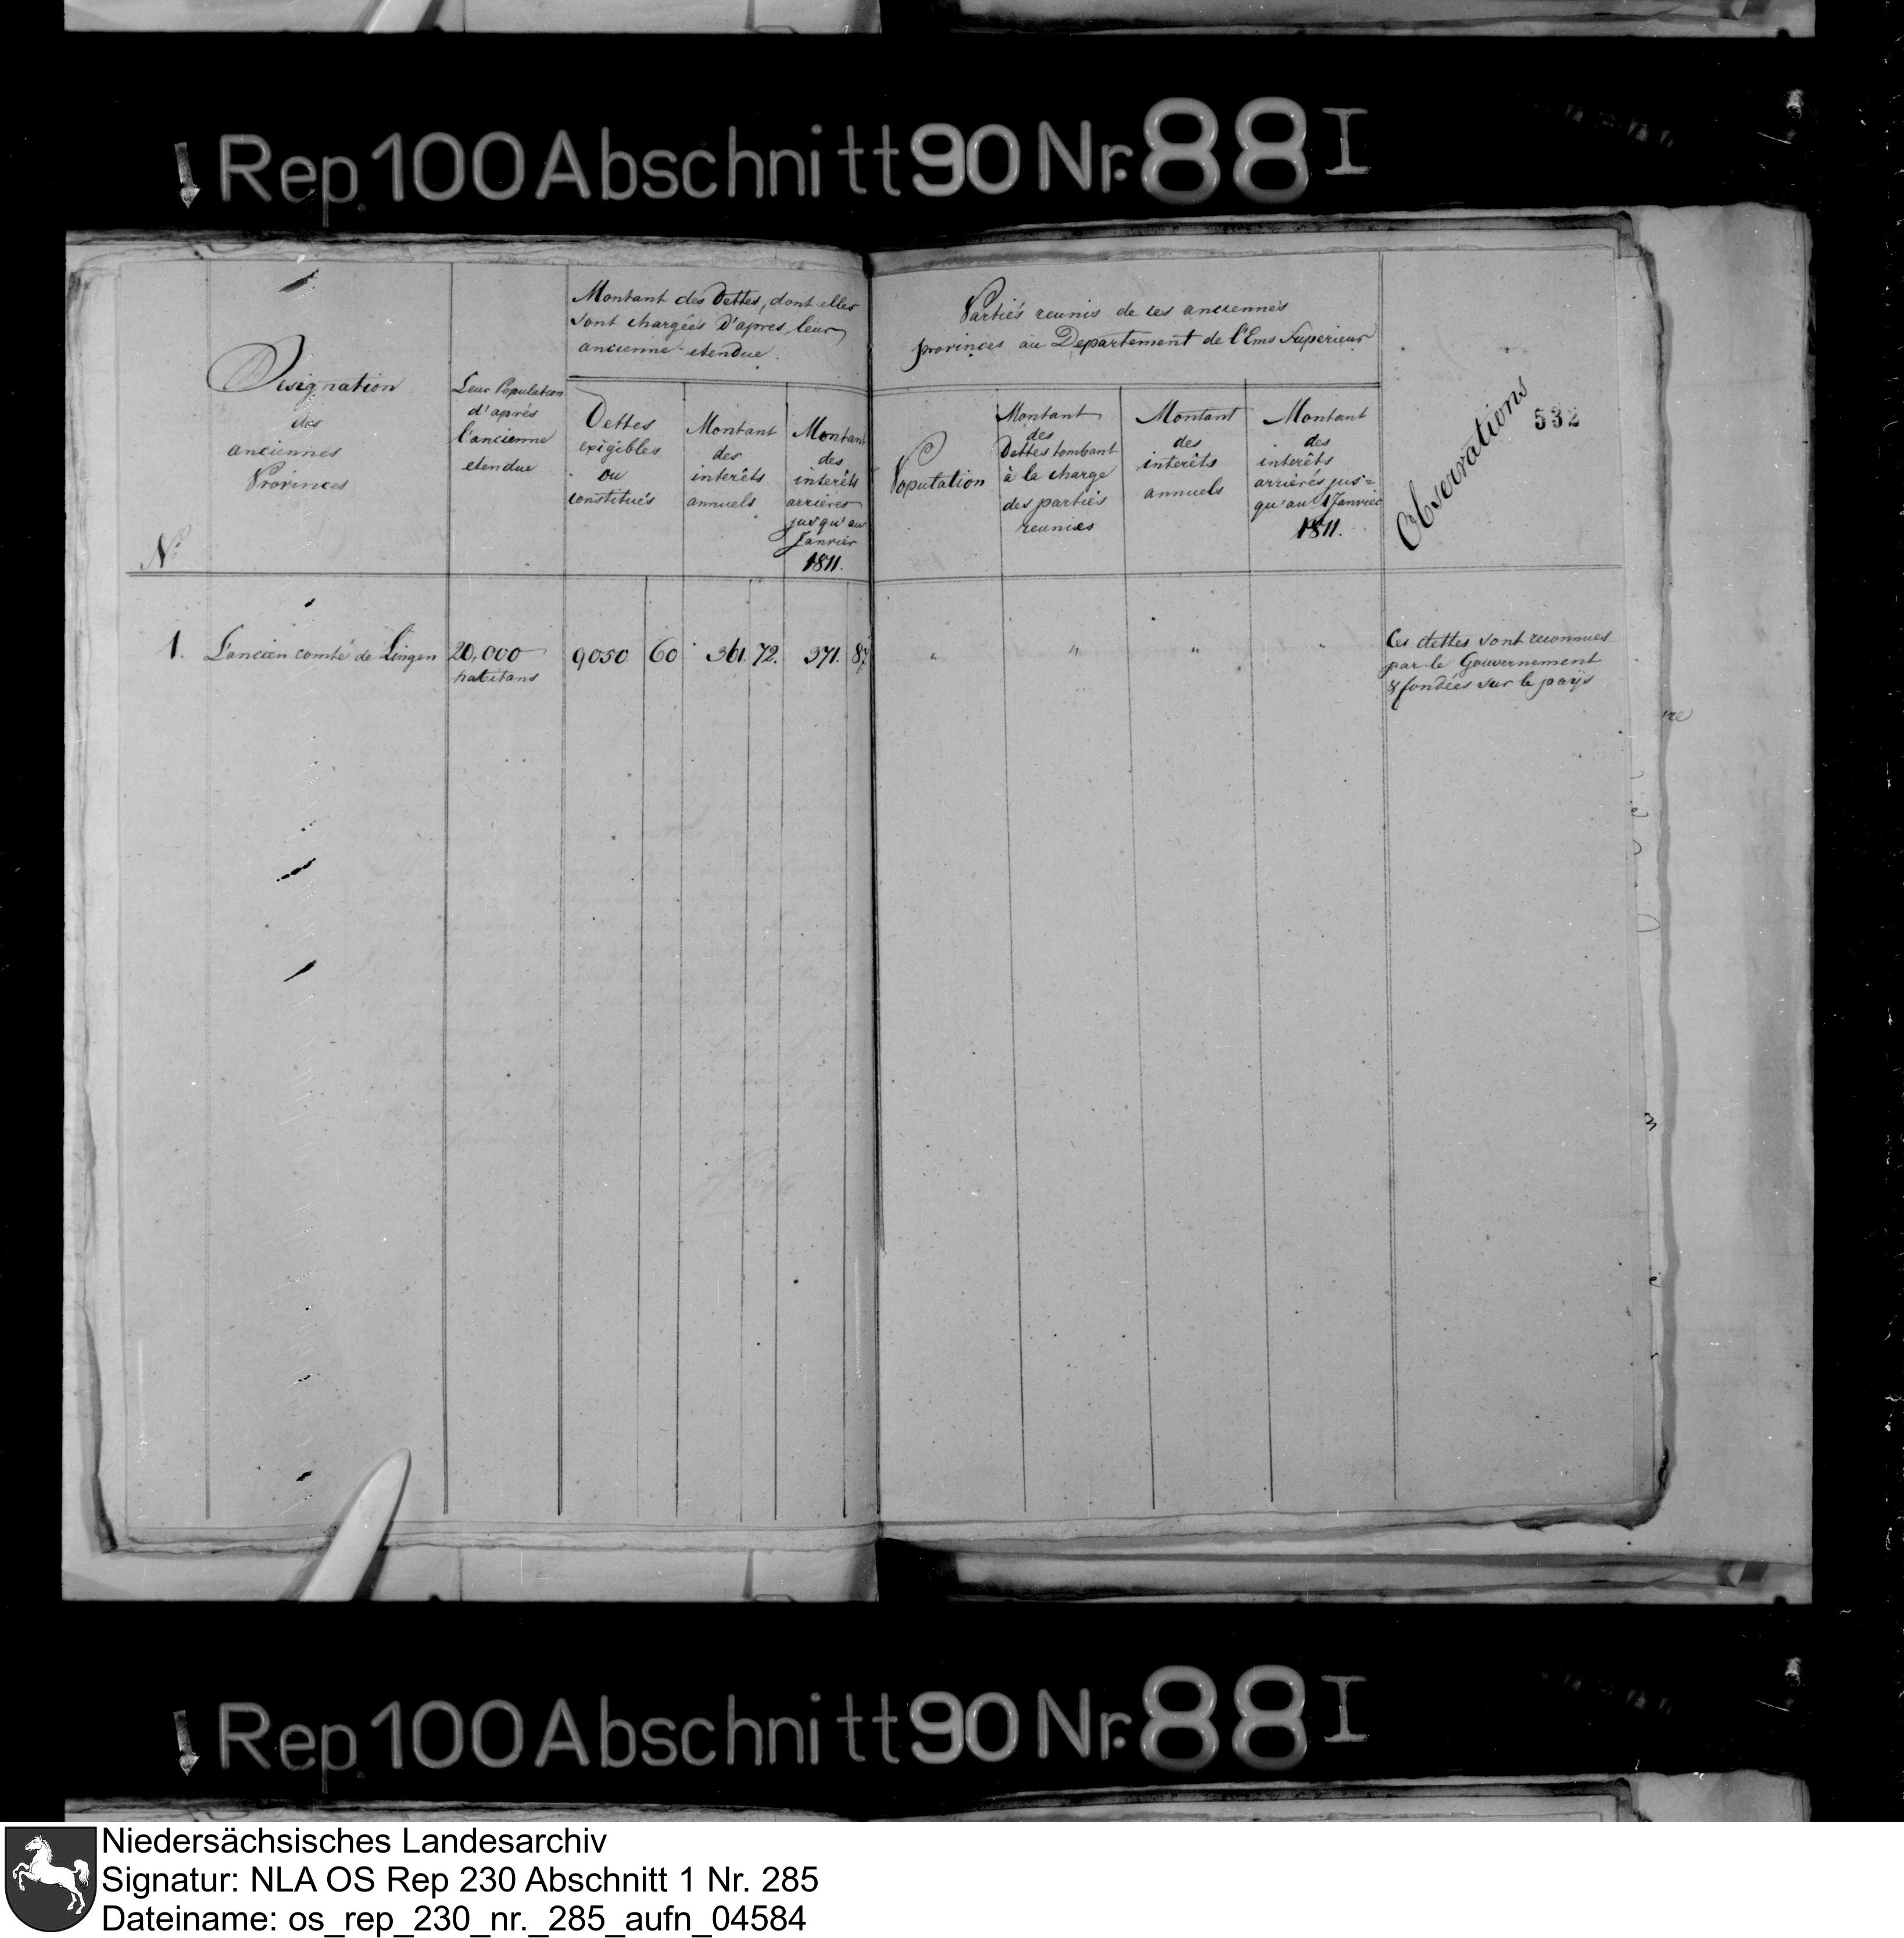 Rep. 100 Abschnitt 90 Nr. 88 I
Designation
des
anciennes
Provinces
N°
Leur Population
d'aprés
l'ancienne
etendue
Montant des Dettes, dont elles
sont chargées d'apres leur
ancienne etendue.
Dettes
exigibles
ou
constitués
Montant
des
interêts
annuels
Montant
des
interêts
arriérés
jusqu'au
Janvier
1811.
Partiés reunis de ces anciennes
provinces au Departement de l'Ems Superieur
Population
Montant
des
Dettes tombant
à la charge
des partiés
reunies
Montant
des
interêts
annuels
Montant
des
interêts
arriérés jus=
qu'au 1 Janvier
1811.
Observations
532
1. L'ancien comté de Lingen 20,000 9050 60 361. 72. 371. 87
habitans
" " " "
Ces dettes sont reconnues
par le Gouvernement
& fondées sur le pays
Rep. 100 Abschnitt 90 Nr. 88 I
Niedersächsisches Landesarchiv
Signatur: NLA OS Rep 230 Abschnitt 1 Nr. 285
Dateiname: os_rep_230_nr._285_aufn_04584